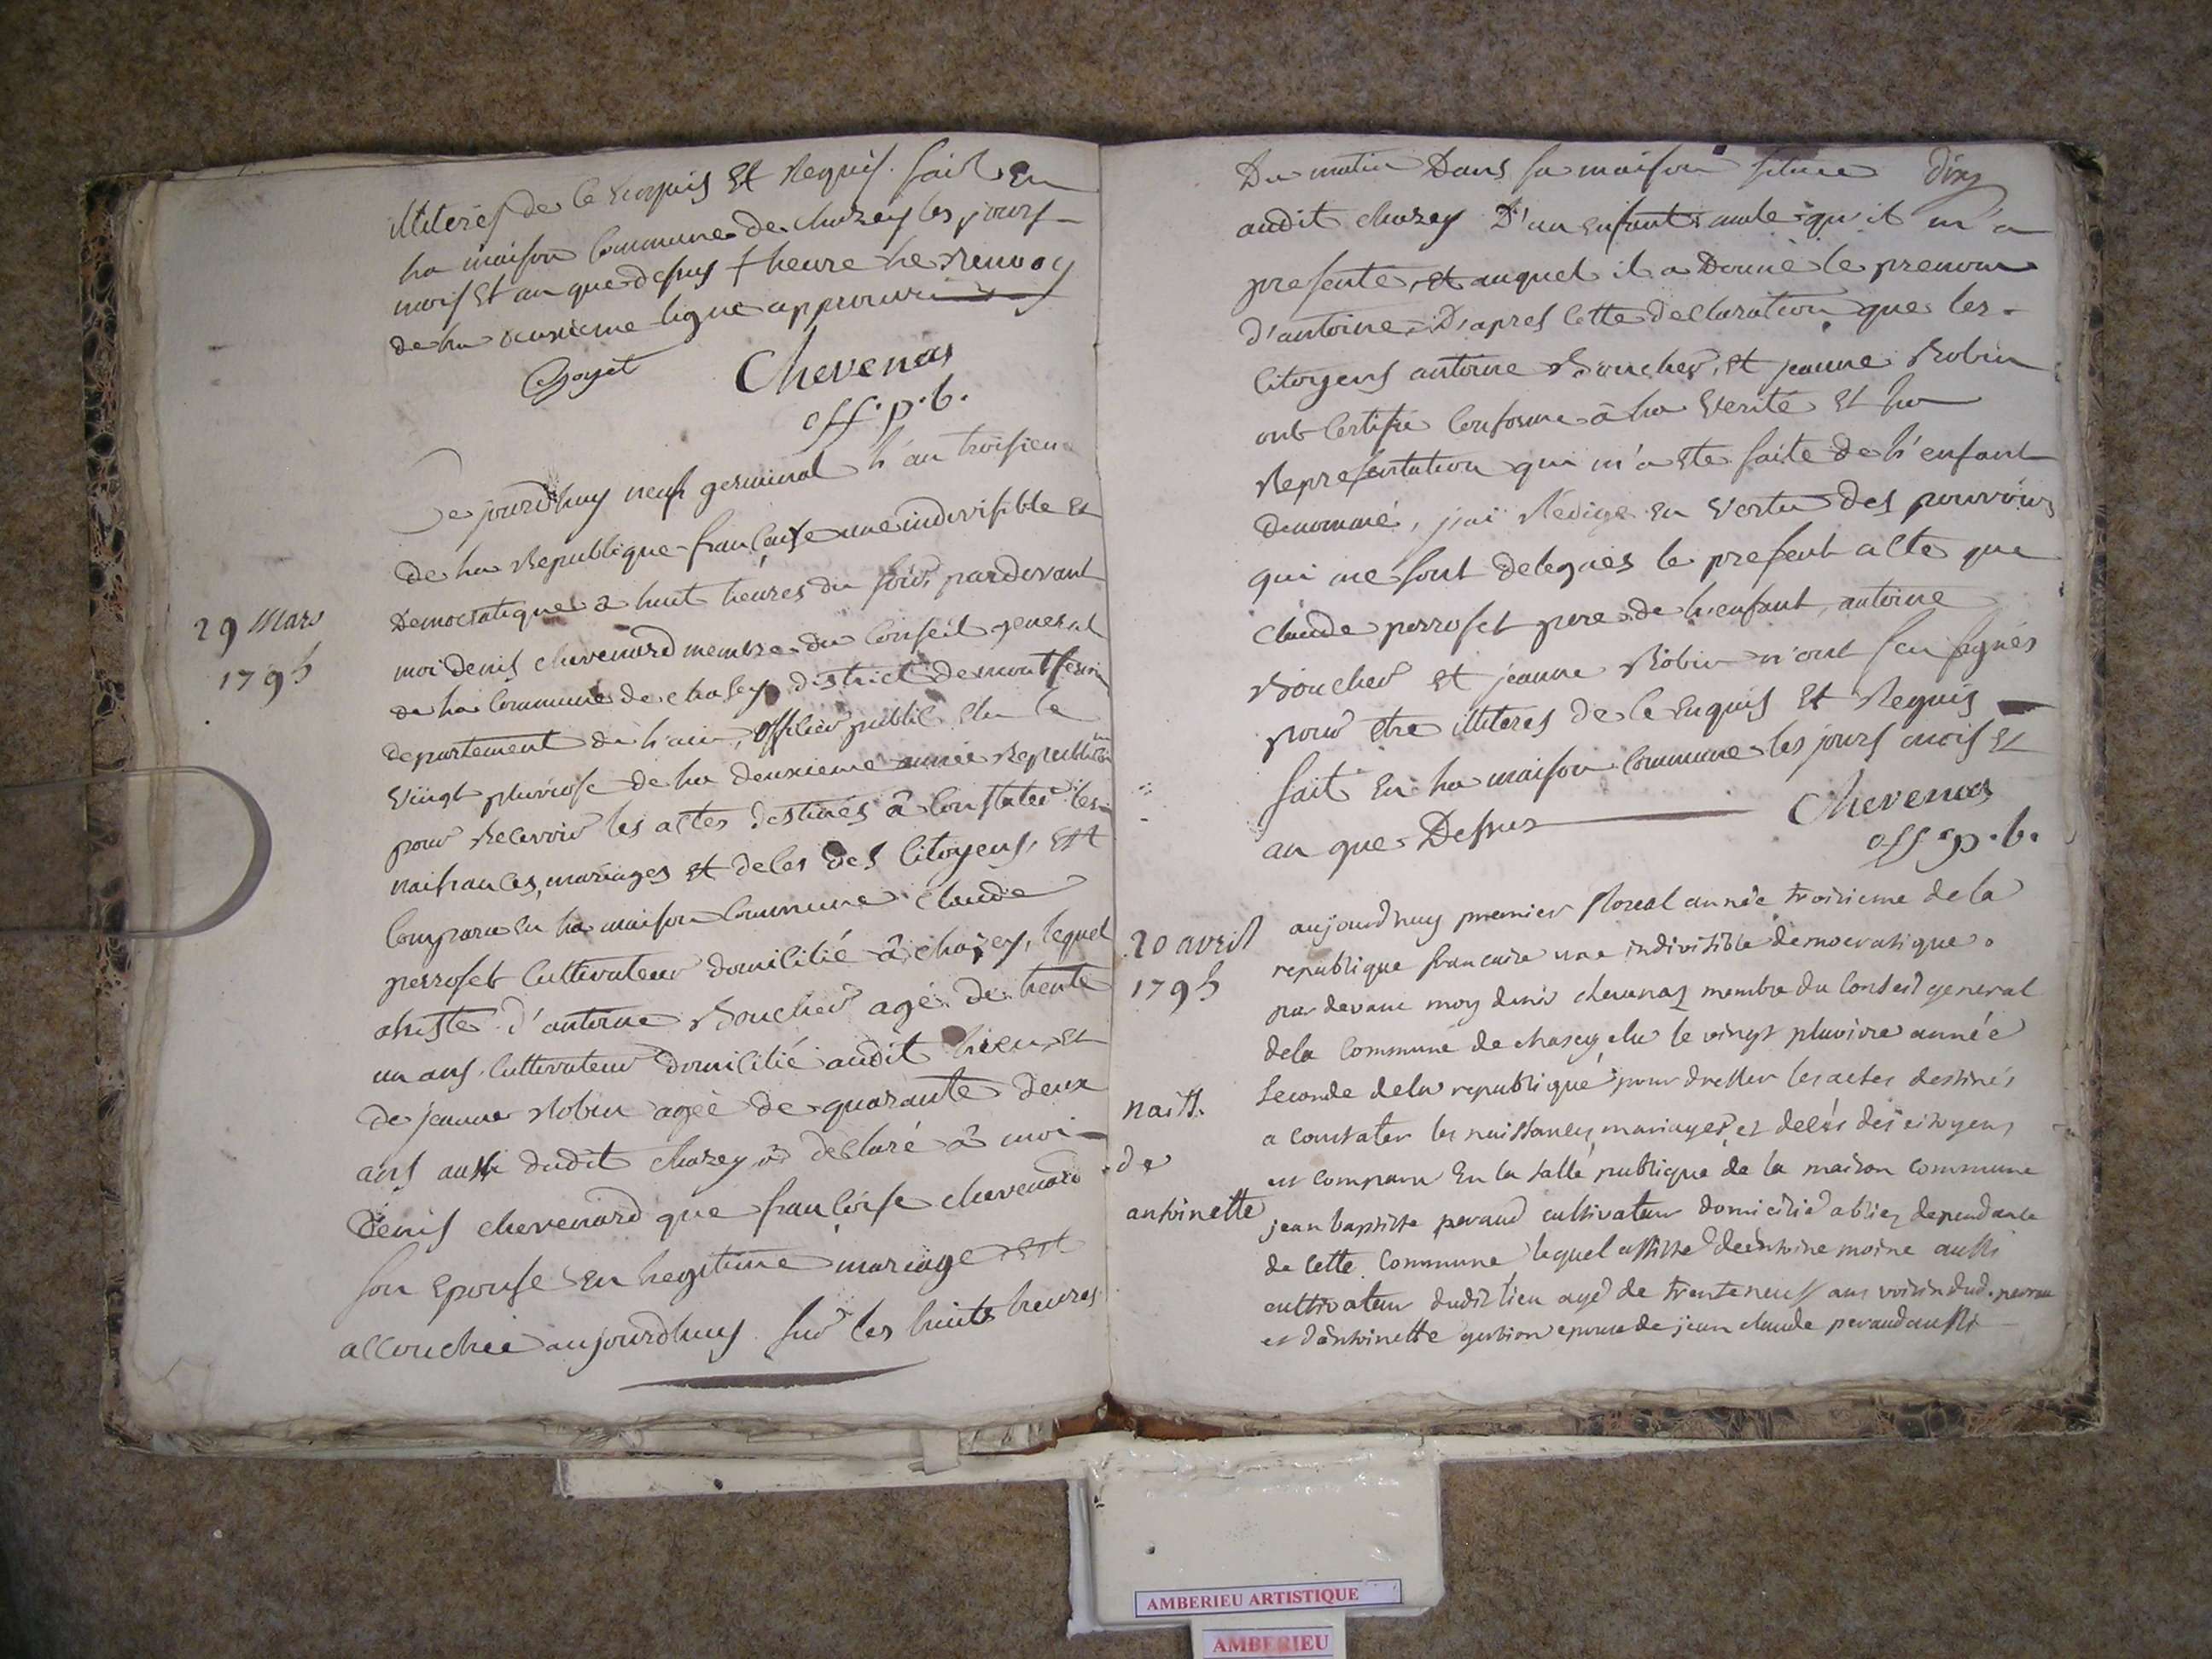 illiteres de ce enquis Et Requis. fait En
la maison Commune de chazey les jours
mois Et an que dessus + heure le renvoy
de la deuxieme ligne approuvé
Goyet
Chevenas
off. p. b.
29 Mars
1795
Ce jourdhuy neuf germinal l'an troisieme
de la Republique francaise une indivisible Et
Democratique a huit heures du soir, pardevant
moi denis chevenard membre du Conseil general
de la Commune de chasey district de montferme
departement de l'ain, officier public elu le
vingt pluviose de la deuxieme année Republicaine
pour Recevoir les actes destinés à Constater les
naissances, mariages et deces des Citoyens, Est
Comparu En la maison Commune Claude
perroset Cultivateur domicilié à chazey, lequel
assisté d'antoine Boucher agé de trente
un ans Cultivateur domicilié audit lieu, Et
de jeanne Robin agée de quarante deux
ans aussi dudit chazey à déclaré à moi
Denis chevenard que françoise chevenard
son Epouse En legitime mariage Est
accouchée aujourdhuy sur les huits heures
Du matin Dans sa maison située
dix
audit chazey D'un Enfant male qu'il m'a
presenté, et auquel il a Donné le prenom
d'antoine, D'apres Cette declaration que les
Citoyens antoine Boucher, Et jeanne Robin
ont Certifié Conforme à la Verité Et la
Representation qui m'a Eté faite de l'enfant
denommé, j'ai Redigé En Vertu des pouvoirs
qui me sont delegués le present acte que
Claude perroset pere de l'enfant, antoine
Boucher Et jeanne Robin n'ont sçu signés
pour etre illiteres de ce Enquis Et Requis
fait En la maison Commune les jours mois Et
an que Dessus
Chevenas
off. p. b.
20 avril
1795
naiss.
de
antoinette
aujourdhuy premier floreal année troisieme de la
republique francaise une indivisible democratique.
par devant moy denis chevenaz membre du Conseil general
dela Commune de chasey elu le vingt pluviose année
Seconde dela republique pour dresser les actes destinés
a constater les naissances, mariages, et decés des citoyens
est comparu En la salle publique de la maison commune
jean baptiste peraud cultivateur domicilié a blies dependante
de cette Commune lequel assisté deantoine moine aussi
cultivateur dudit lieu agé de trente neuf ans voisin dud. peraud
et dantoinette epouse de jean claude peraud aussi
AMBERIEU ARTISTIQUE
AMBERIEU